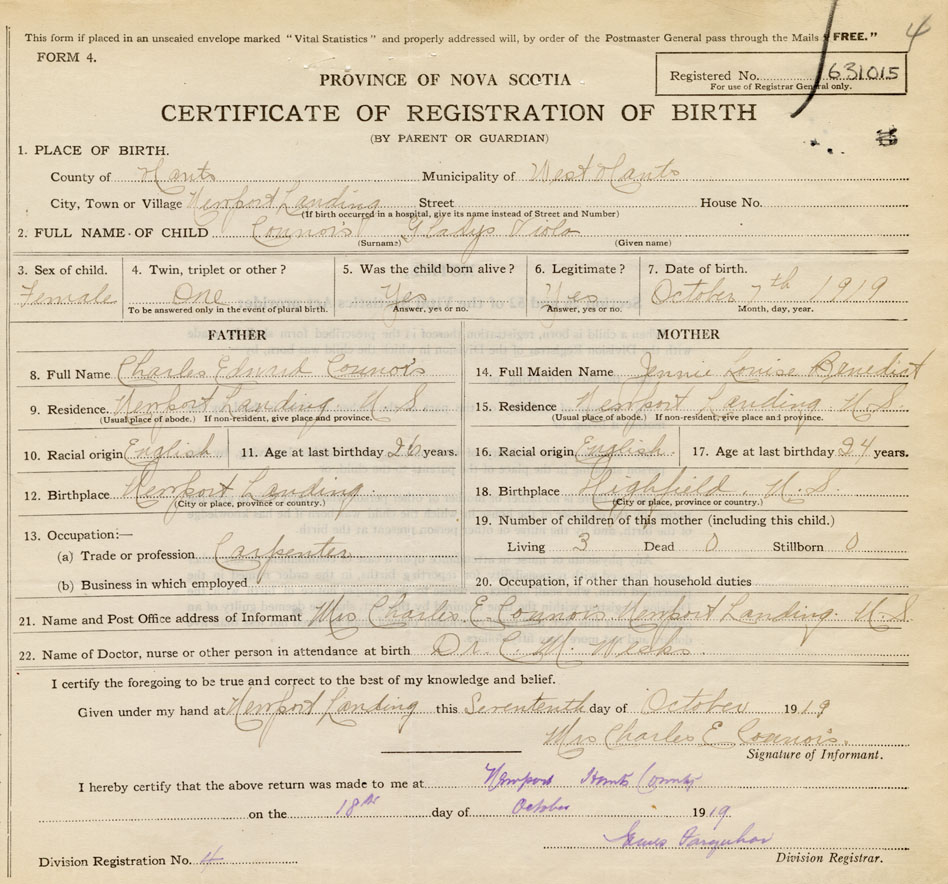 This form if placed in an unsealed envelope marked "Vital Statistics" and properly addressed will, by order of the Postmaster General pass through the Mails FREE." 4
FORM 4.
Registered No. 631015
For use of Registrar General only.
PROVINCE OF NOVA SCOTIA
CERTIFICATE OF REGISTRATION OF BIRTH
(BY PARENT OR GUARDIAN)
1. PLACE OF BIRTH.
County of Hants Municipality of West Hants
City, Town or Village Newport Landing Street House No.
(If birth occurred in a hospital, give its name instead of Street and Number)
2. FULL NAME OF CHILD Connors Gladys Viola
(Surname) (Given name)
3. Sex of child. 4. Twin, triplet or other? 5. Was the child born alive? 6. Legitimate? 7. Date of birth.
Female One Yes Yes October 7th 1919
To be answered only in the event of plural birth. Answer, yes or no. Answer, yes or no. Month, day, year.
FATHER MOTHER
8. Full Name Charles Edward Connors 14. Full Maiden Name Jennie Louise Benedict
9. Residence. Newport Landing N.S. 15. Residence Newport Landing N.S.
(Usual place of abode.) If non-resident, give place and province. (Usual place of abode.) If non-resident, give place and province.
10. Racial origin English 11. Age at last birthday 26 years. 16. Racial origin English. 17. Age at last birthday 24 years.
12. Birthplace Newport Landing. 18. Birthplace Highfield. N.S
(City or place, province or country.) (City or place, province or country.)
13. Occupation:— 19. Number of children of this mother (including this child.)
(a) Trade or profession Carpenter Living 3 Dead 0 Stillborn 0
(b) Business in which employed 20. Occupation, if other than household duties
21. Name and Post Office address of Informant Mrs Charles E. Connors. Newport Landing. N.S.
22. Name of Doctor, nurse or other person in attendance at birth Dr. C. M.
I certify the foregoing to be true and correct to the best of my knowledge and belief.
Given under my hand at Newport Landing this Seventeenth day of October 1919
Mrs Charles E Connors.
Signature of Informant.
I hereby certify that the above return was made to me at Newport Hants County
on the 18th day of October 1919.
Farquhar
Division Registrar.
Division Registration No. 4